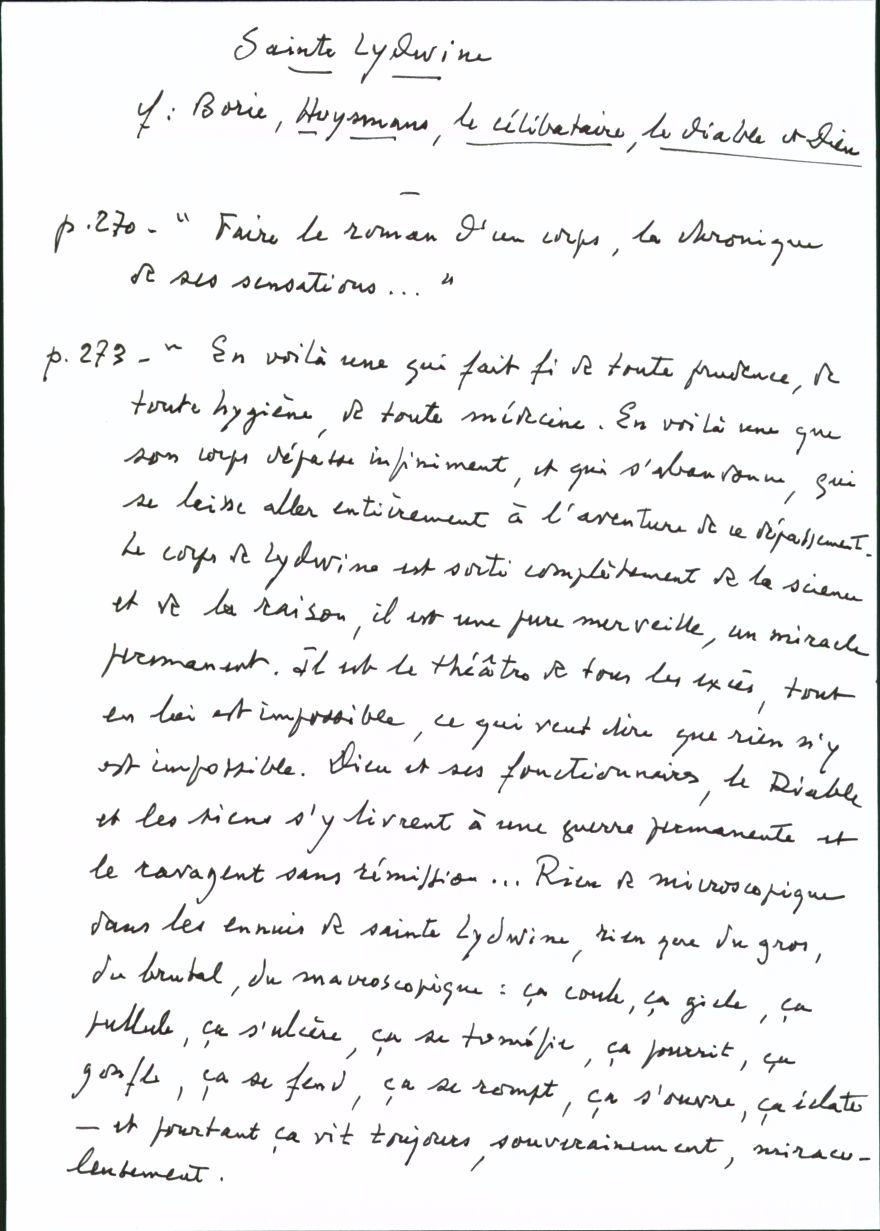 Sainte Lydwine
cf : Borie, Huysmans, le célibataire, le diable et Dieu
—
p. 270 - " Faire le roman d'un corps, la chronique
de ses sensations... "
p. 273 - " En voilà une qui fait fi de toute prudence, de
toute hygiène, de toute médecine. En voilà une que
son corps dépasse infiniment, et qui s'abandonne, qui
se laisse aller entièrement à l'aventure de ce dépassement.
Le corps de Lydwine est sorti complètement de la science
et de la raison, il est une pure merveille, un miracle
permanent. Il est le théâtre de tous les excès, tout
en lui est impossible, ce qui veut dire que rien n'y
est impossible. Dieu et ses fonctionnaires, le Diable
et les siens s'y livrent à une guerre permanente et
le ravagent sans rémission... Rien de microscopique
dans les ennuis de sainte Lydwine, rien que du gros,
du brutal, du macroscopique : ça coule, ça gicle, ça
pullule, ça s'ulcère, ça se tuméfie, ça pourrit, ça
gonfle, ça se fend, ça se rompt, ça s'ouvre, ça éclate
— et pourtant ça vit toujours, souverainement, miracu-
leusement.